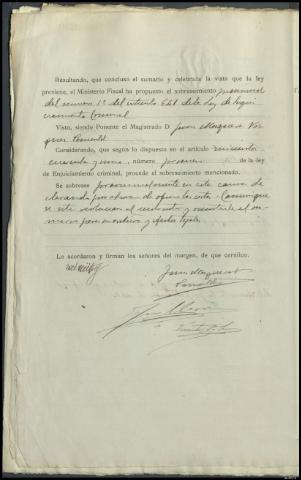 Resultando, que concluso el sumario y celebrada la vista que la ley
previene, el Ministerio Fiscal ha propuesto el sobreseimiento provisional
del número 1º del artículo 641 de la Ley de Enjui
ciamiento Criminal
Visto, siendo Ponente el Magistrado D. Juan
Considerando, que según lo dispuesto en el artículo seiscientos
cuarenta y uno, número primero de la ley
de Enjuiciamiento criminal, procede el sobreseimiento mencionado.
Se sobresee provisionalmente en esta causa de
clarando de oficio las costas. Comuníque
se esta resolución al y al su
mario para su archivo y efectos legales.
Lo acordaron y firman los señores del margen, de que certifico.
Juan